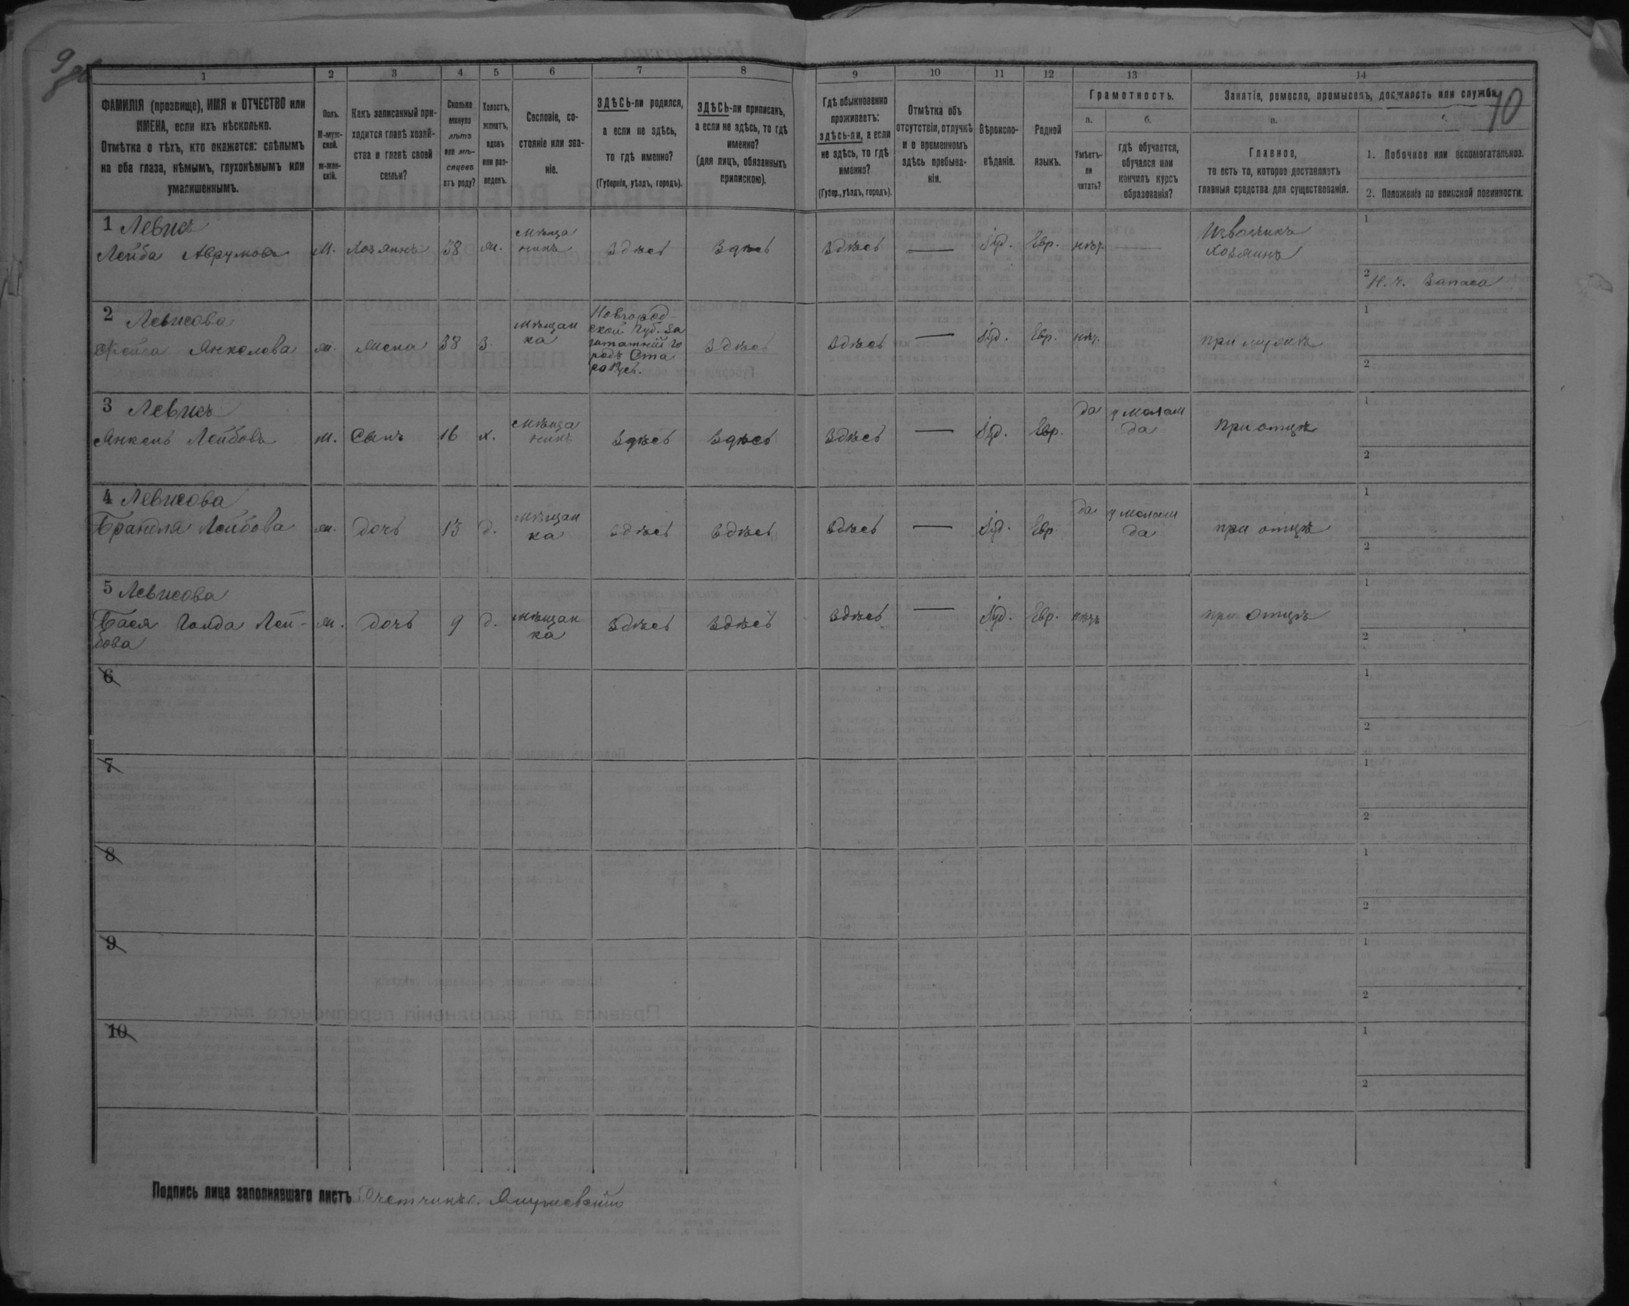 1 2 3 4 5 6 7 8 9 10 11 12 13 14
10
ФАМИЛІЯ (прозвище), ИМЯ и ОТЧЕСТВО или
ИМЕНА, если ихъ нѣсколько.
Отмѣтка о тѣхъ, кто окажется: слѣпымъ
на оба глаза, нѣмымъ, глухонѣмымъ или
умалишеннымъ.
Полъ.
М-муж-
ской.
ж-жен-
скій.
Какъ записанный при-
ходится главѣ хозяй-
ства и главѣ своей
семьи?
Сколько
минуло
лѣтъ
или мѣ-
сяцевъ
отъ роду?
Холостъ,
женатъ,
вдовъ
или раз-
веденъ.
Сословіе, со-
стояніе или зва-
ніе.
ЗДѢСЬ-ли родился,
а если не здѣсь,
то гдѣ именно?
(Губернія, уѣздъ, городъ).
ЗДѢСЬ-ли приписанъ,
а если не здѣсь, то гдѣ
именно?
(для лицъ, обязанныхъ
припискою).
Гдѣ обыкновенно
проживаетъ:
здѣсь-ли, а если
не здѣсь, то гдѣ
именно?
(Губер., уѣздъ, городъ).
Отмѣтка объ
отсутствіи, отлучкѣ
и о временномъ
здѣсь пребыва-
ніи.
Вѣроиспо-
вѣданіе.
Родной
языкъ.
Грамотность.
а.
Умѣетъ-
ли
читать?
б.
гдѣ обучается,
обучался или
кончилъ курсъ
образованія?
Занятіе, ремесло, промыселъ, должность или служба.
а.
Главное,
то есть то, которое доставляетъ
главныя средства для существованія.
1. Побочное или вспомогательное.
2. Положеніе по воинской повинности.
1 Левикъ
Лейба Аврумовъ м. Хозяинъ 38 ж. Мѣща
нинъ Здѣсь Здѣсь Здѣсь — Іуд. Евр. нѣт. Извозчикъ
Хозяинъ
1
2 Н. ч. Запаса
2
Янкелова ж. жена 38 з. мѣщан
ка
Новгород
ской Губ. за
штатный го
родъ Ста
Здѣсь Здѣсь — Іуд. Евр. нѣт. при мужѣ
1
2
3
Янкель Лейбовъ м. Сынъ 16 х. Мѣща
нинъ Здѣсь Здѣсь Здѣсь — Іуд. Евр. да у мелам
да при отцѣ
1
2
4
Лейбова ж. дочь 13 д. мѣщан
ка Здѣсь Здѣсь Здѣсь — Іуд. Евр. да у мелам
да при отцѣ
1
2
5
Бася Голда Лей-
бова ж. дочь 9 д. мѣщан
ка Здѣсь Здѣсь Здѣсь — Іуд. Евр. нѣт при отцѣ
1
2
6
1
2
7
1
2
8
1
2
9
1
2
10
1
2
Подпись лица заполнявшаго листъ Счетчикъ